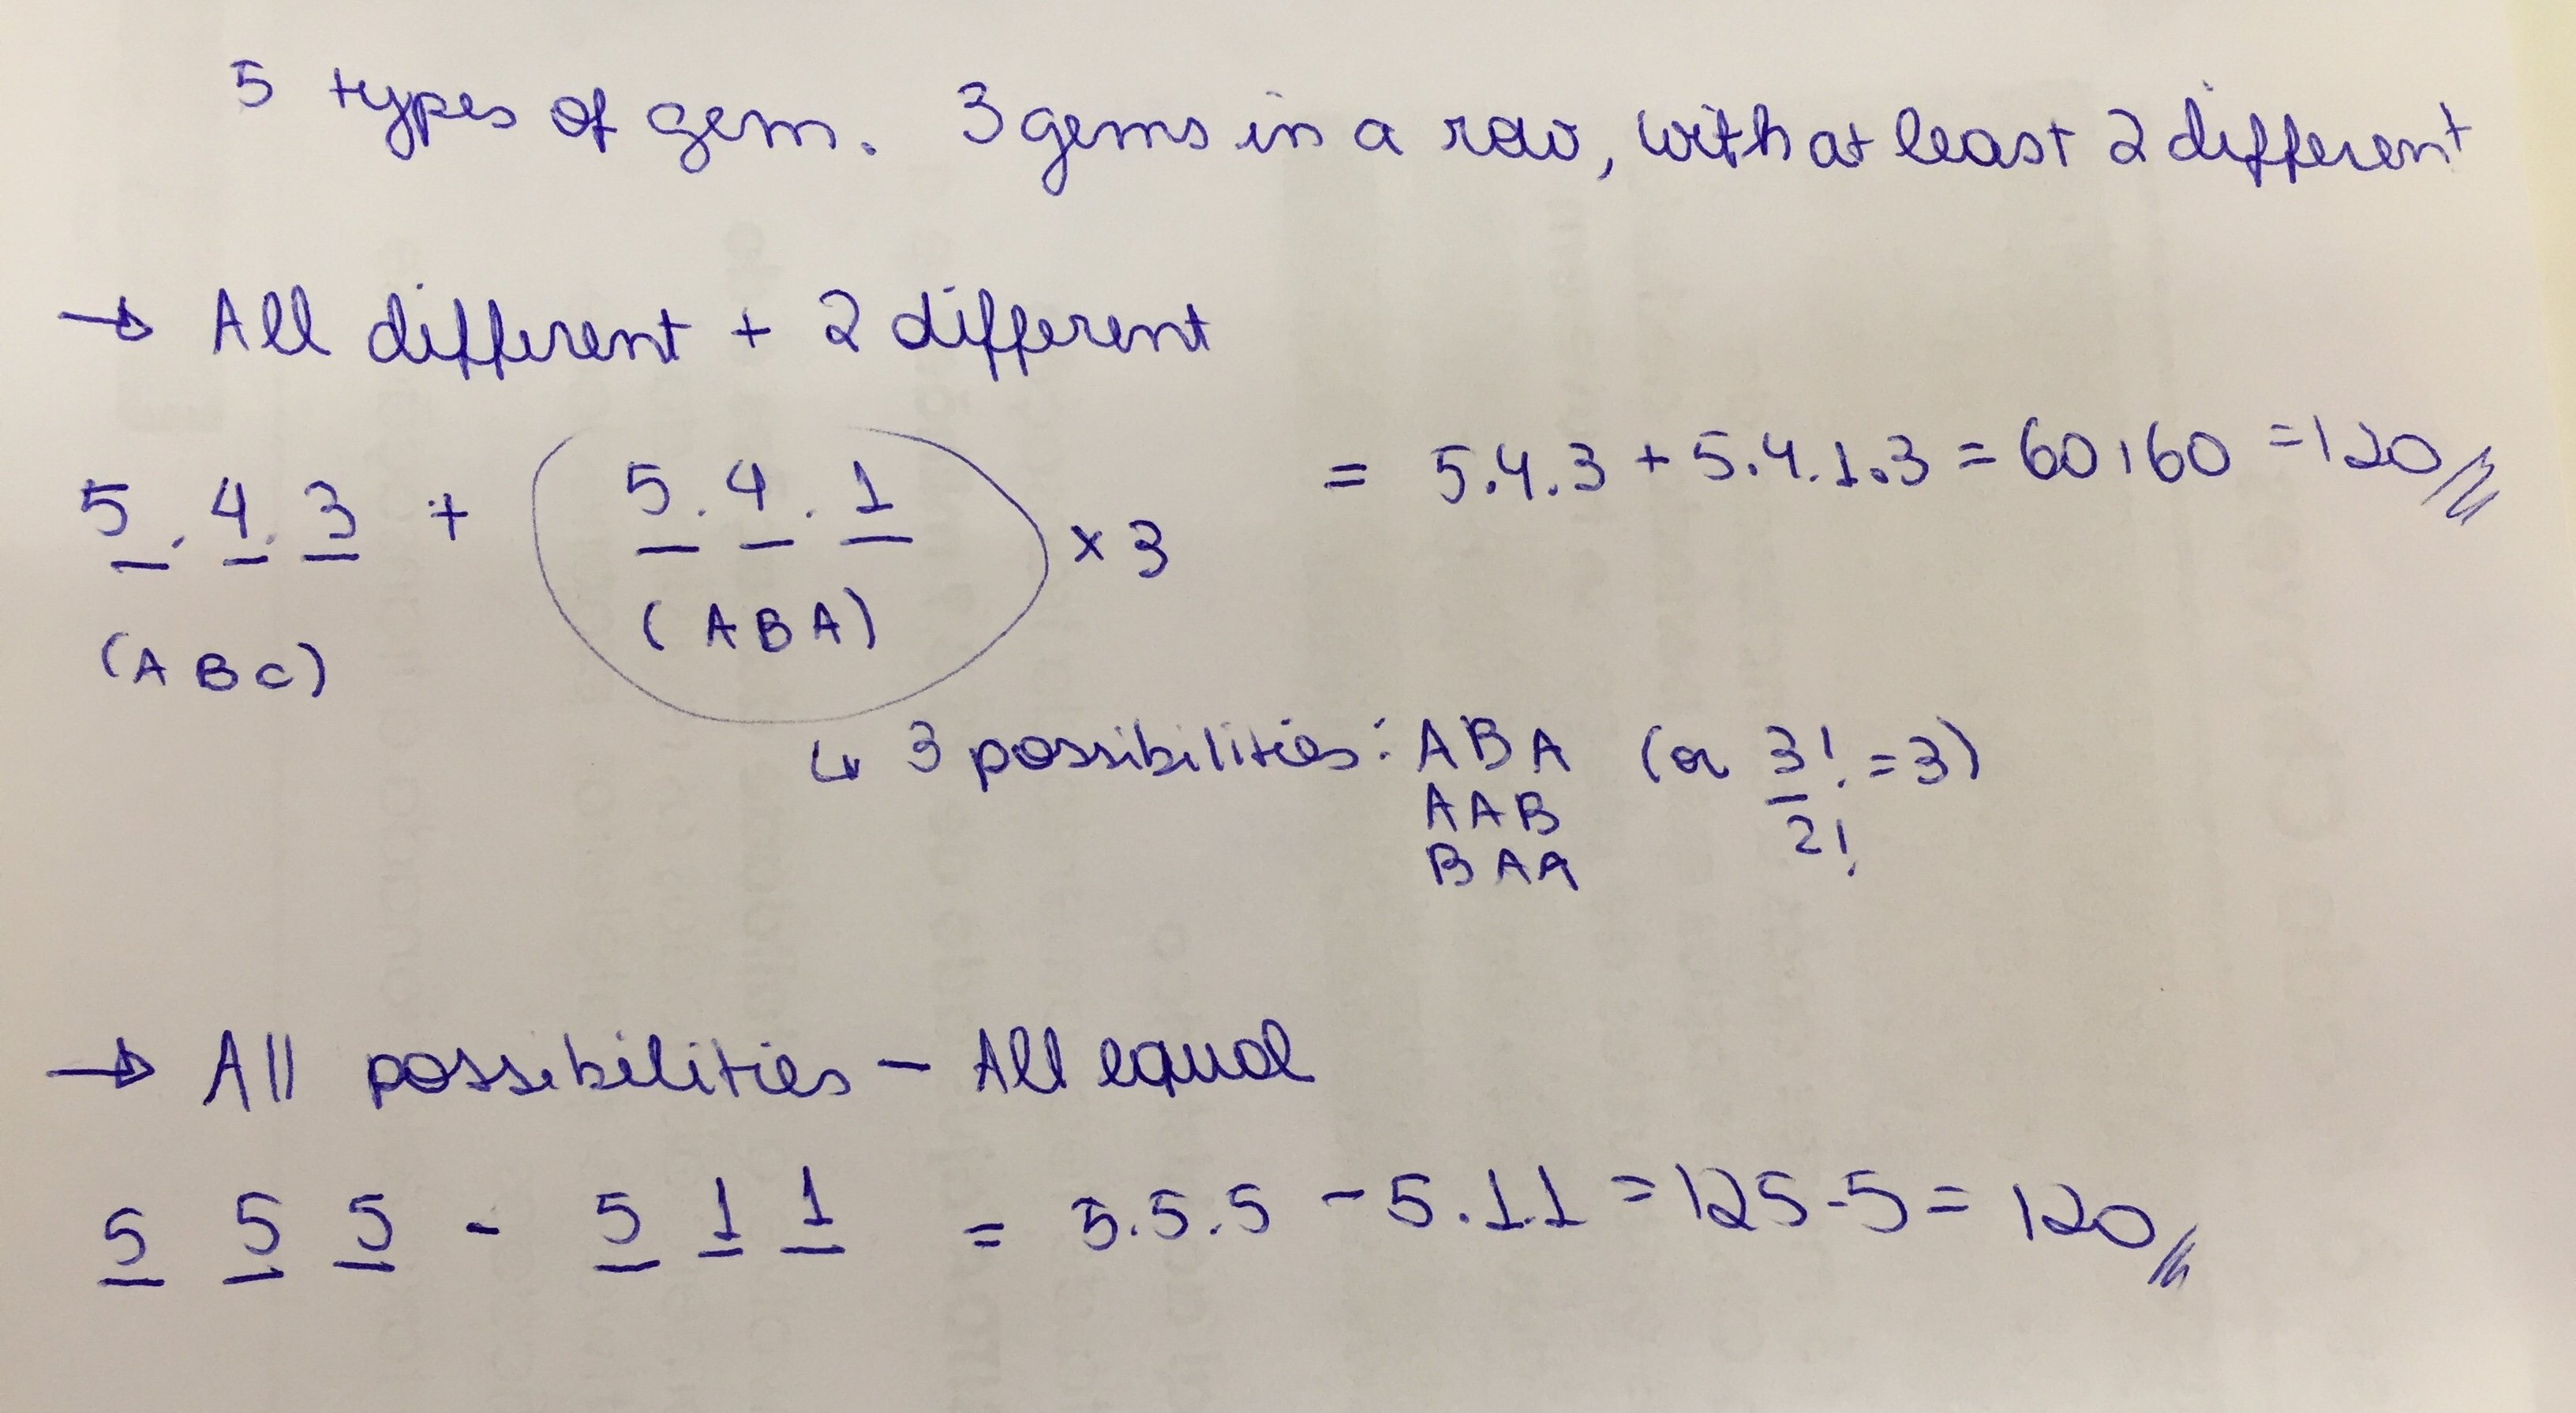 5 types of gem. 3 gems in a row, with at least 2 different
→ All different + 2 different
5 . 4 . 3 + 5 . 4 . 1 × 3 = 5.4.3 + 5.4.1.3 = 60+60 = 120
(A B C) (A B A)
↳ 3 possibilities: A B A (or 3!/2! = 3)
A A B
B A A
→ All possibilities - All equal
5 5 5 - 5 1 1 = 5.5.5 - 5.1.1 = 125-5 = 120